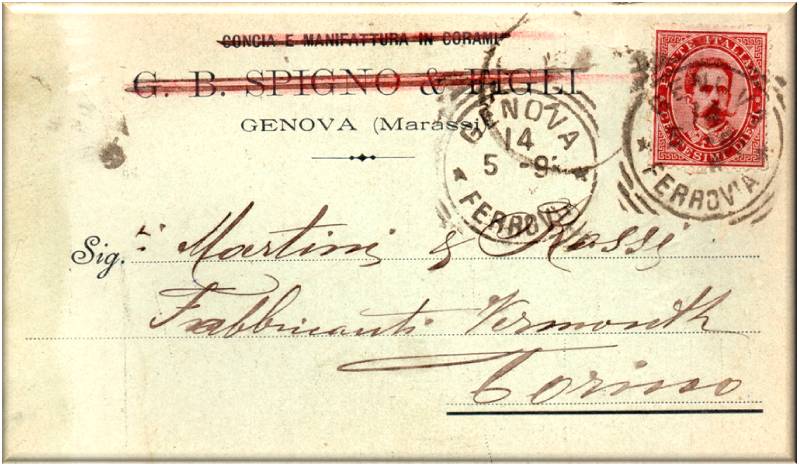 CONCIA E MANIFATTURA IN CORAMI
G. B. SPIGNO & FIGLI
GENOVA (Marassi)
POSTE ITALIANE
CENTESIMI DIECI
GENOVA
14
5 -9
FERROVIA
FERROVIA
Sig.ri Martini & Rossi
Fabbricanti Vermouth
Torino